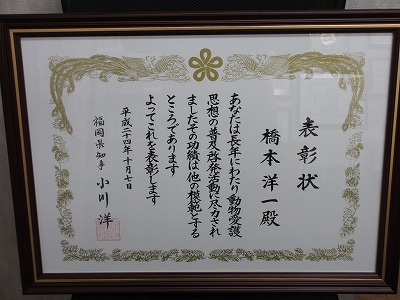 表彰状
橋本洋一殿
あなたは長年にわたり動物愛護
思想の普及啓発活動に尽力され
ましたその功績は他の模範とする
ところであります
よってこれを表彰します
平成二十四年十月七日
福岡県知事 小川 洋